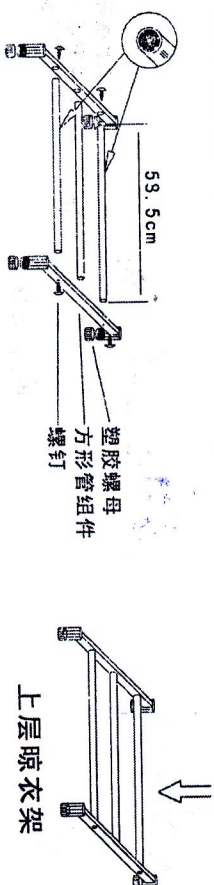 53.5cm
塑胶螺母
方形管组件
螺钉
上层晾衣架